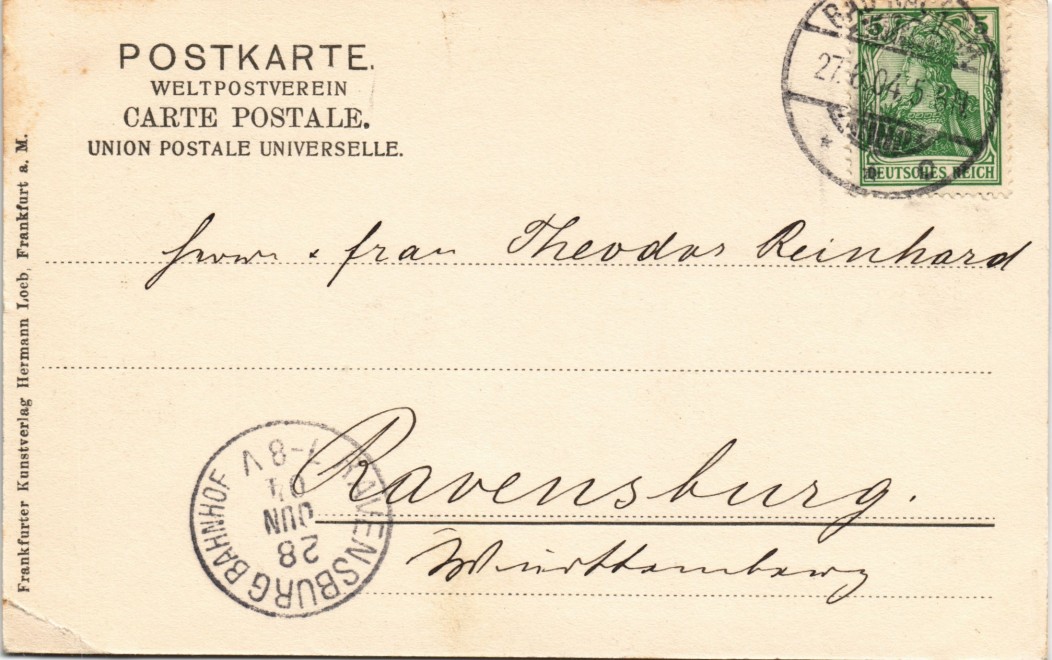 POSTKARTE.
WELTPOSTVEREIN
CARTE POSTALE.
UNION POSTALE UNIVERSELLE.
5 5
27.6.04. 5
DEUTSCHES REICH
Herrn & frau Theodor Reinhard
Ravensburg.
Württemberg
RAVENSBURG BAHNHOF
28
JUN
04
7-8 V
Frankfurter Kunstverlag Hermann Loeb, Frankfurt a. M.